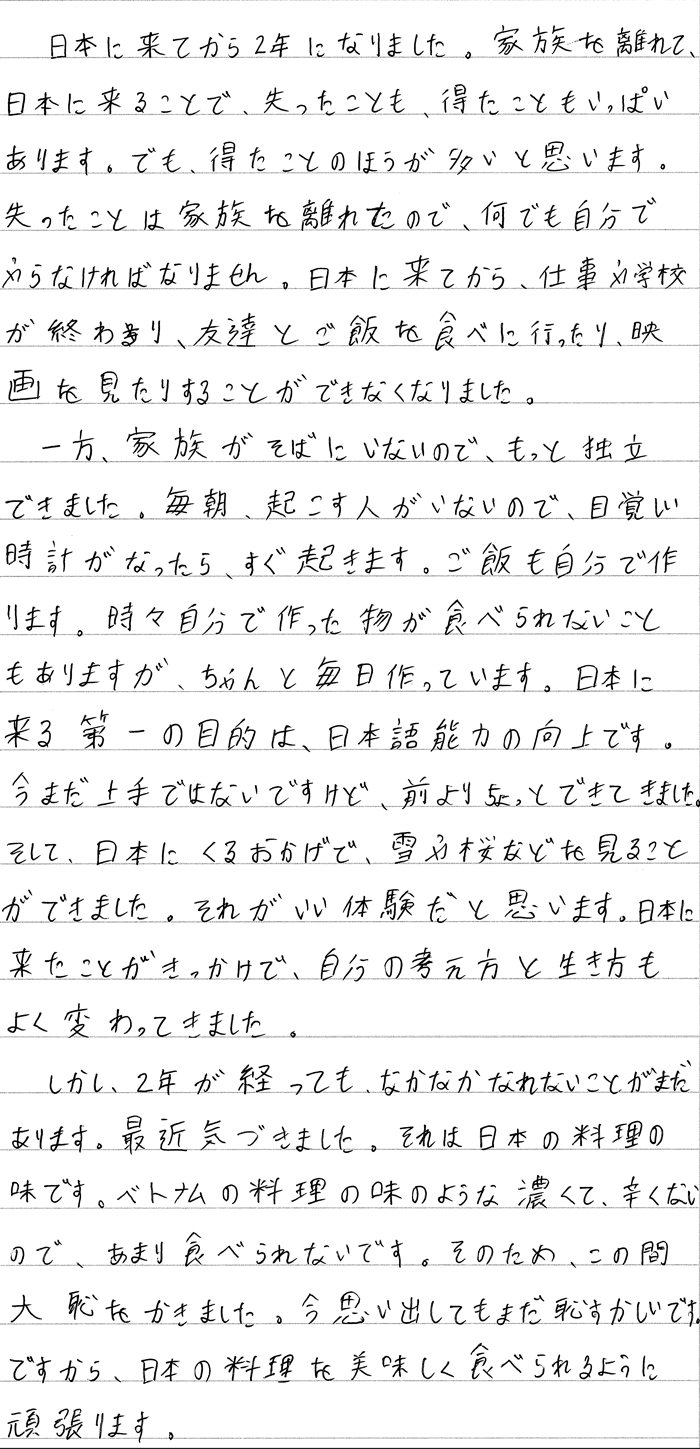 日本に来てから2年になりました。家族を離れて、
日本に来ることで、失ったことも、得たこともいっぱい
あります。でも、得たことのほうが多いと思います。
失ったことは家族を離れたので、何でも自分で
やらなければなりません。日本に来てから、仕事や学校
が終わり、友達とご飯を食べに行ったり、映
画を見たりすることができなくなりました。
一方、家族がそばにいないので、もっと独立
できました。毎朝、起こす人がいないので、目覚い
時計がなったら、すぐ起きます。ご飯も自分で作
ります。時々自分で作った物が食べられないこと
もありますが、ちゃんと毎日作っています。日本に
来る第一の目的は、日本語能力の向上です。
今まだ上手ではないですけど、前よりちょっとできてきました。
そして、日本にくるおかげで、雪や桜などを見ること
ができました。それがいい体験だと思います。日本に
来たことがきっかけで、自分の考え方と生き方も
よく変わってきました。
しかし、2年が経っても、なかなかなれないことがまだ
あります。最近気づきました。それは日本の料理の
味です。ベトナムの料理の味のような濃くて、辛くない
ので、あまり食べられないです。そのため、この間
大恥をかきました。今思い出してもまだ恥すかしいです。
ですから、日本の料理を美味しく食べられるように
頑張ります。